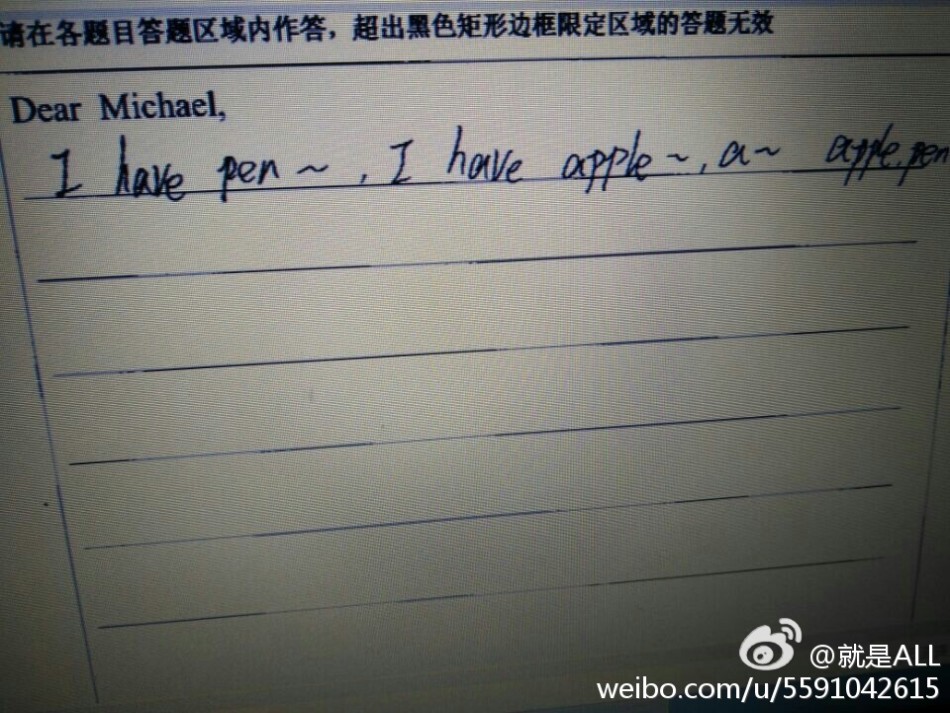 请在各题目答题区域内作答，超出黑色矩形边框限定区域的答题无效
Dear Michael,
I have pen ~ , I have apple ~ , a ~ apple pen
@就是ALL
weibo.com/u/5591042615